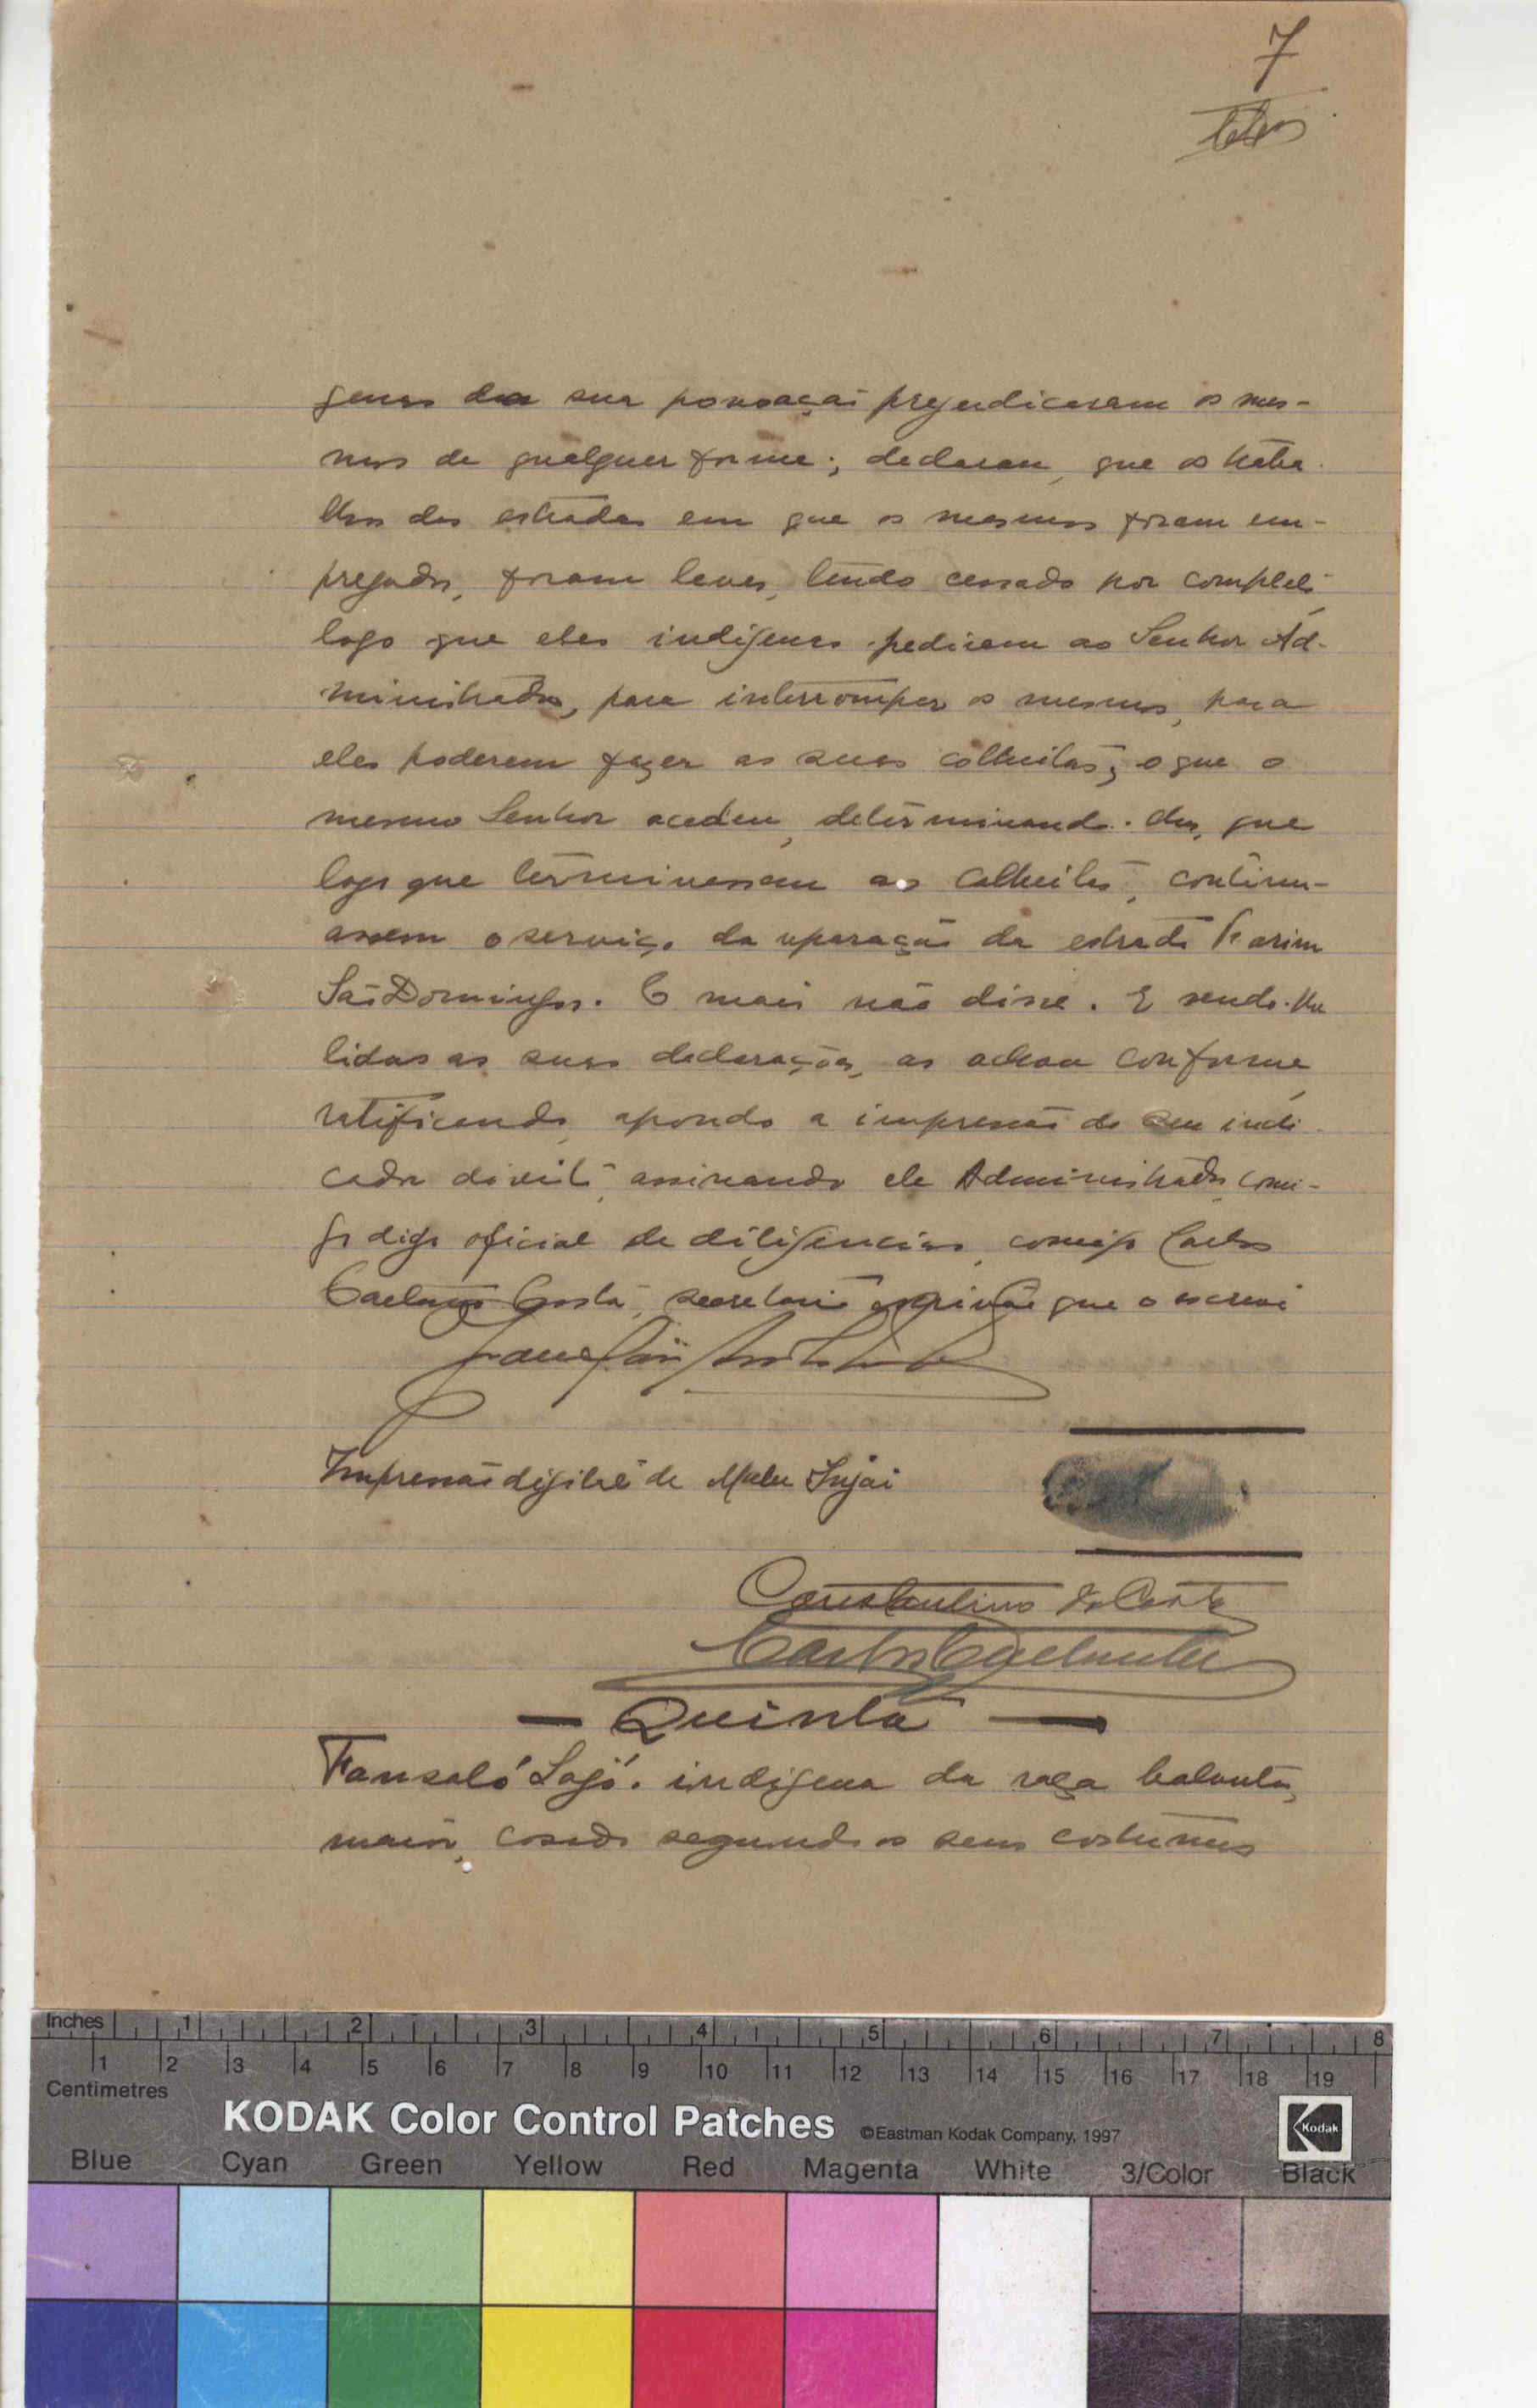 7
genas da sua povoação prejudicaram os mes-
mos de qualquer forma; declarou, que os traba-
lhos das estradas em que os mesmos foram em-
pregados, foram leves, tendo cessado por completo,
logo que eles indigenas pediram ao Senhor Ad-
ministrador, para interromper os mesmos, para
eles poderem fazer as suas colheitas; o que o
mesmo Senhor acedeu, determinando-lhes, que
logo que terminassem as colheitas, continu-
assem o serviço da reparação da estrada
São Domingos. E mais não disse. E sendo-lhe
lidas as suas declarações, as achou conforme,
ratificando, apondo a impressão do seu indi-
cador direito, assinando ele Administrador, comi-
go digo oficial de diligencias, comigo Carlos
Caetano Costa, secretario escrivão que o escrevi
Impressão digital de Malu Injai
Constantino da Costa
Carlos Caetano
— Quinta —
Fansaló Lajó. indigena da raça balanta,
maior, casado segundo os seus costumes
Inches 1 2 3 4 5 6 7 8
1 2 3 4 5 6 7 8 9 10 11 12 13 14 15 16 17 18 19
Centimetres
KODAK Color Control Patches ©Eastman Kodak Company, 1997 Kodak
Blue Cyan Green Yellow Red Magenta White 3/Color Black